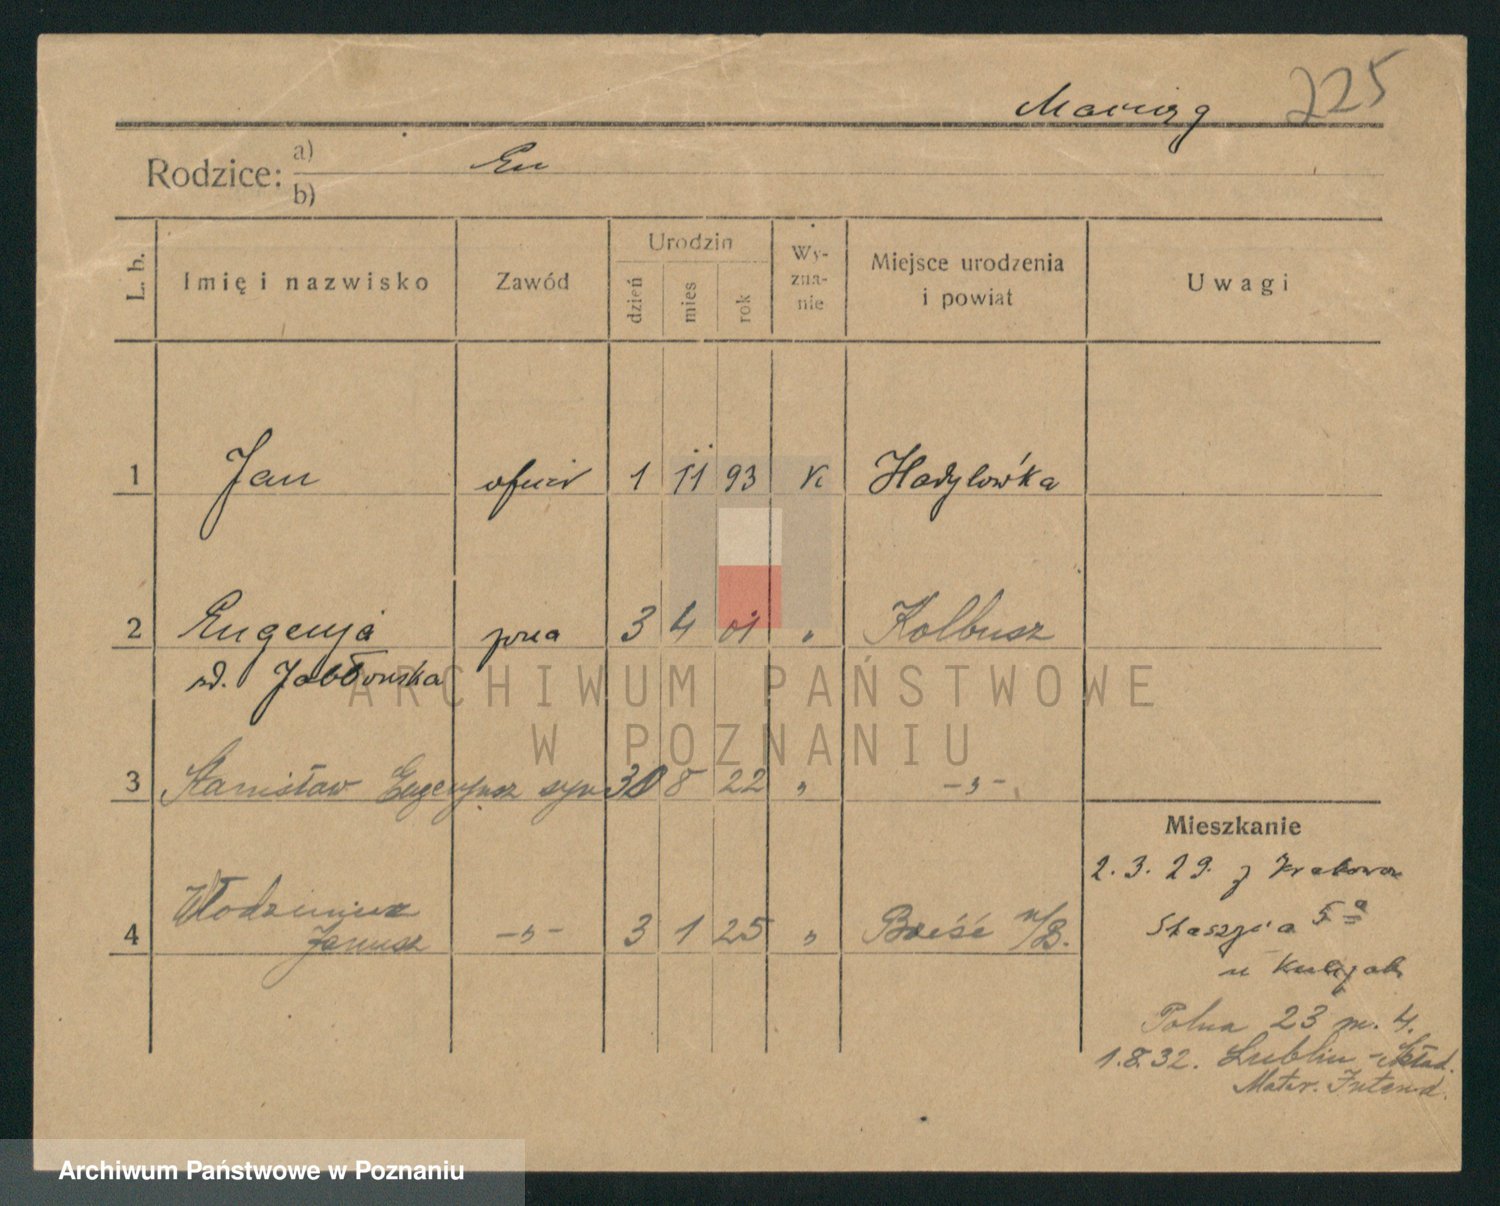 225
Rodzice: a)
b)
L. b.
Imię i nazwisko
Zawód
Urodzin
dzień
mies
rok
Wy-
zna-
nie
Miejsce urodzenia
i powiat
Uwagi
1 Jan oficer 1 11 93 K Hadylówka
2 Eugenja żona 3 4 01 " Kolbusz
zd. Jabłońska
3 Stanisław Eugenjusz syn 30 8 22 " -"-
4 Włodzimierz
Janusz -"- 3 1 25 " Brześć n/B.
Mieszkanie
2. 3. 29. z Krakowa
Staszyca 5a
u
Polna 23 m. 4.
1.8.32. Lublin - Skład.
Mater. Intend.
ARCHIWUM PAŃSTWOWE
W POZNANIU
Archiwum Państwowe w Poznaniu